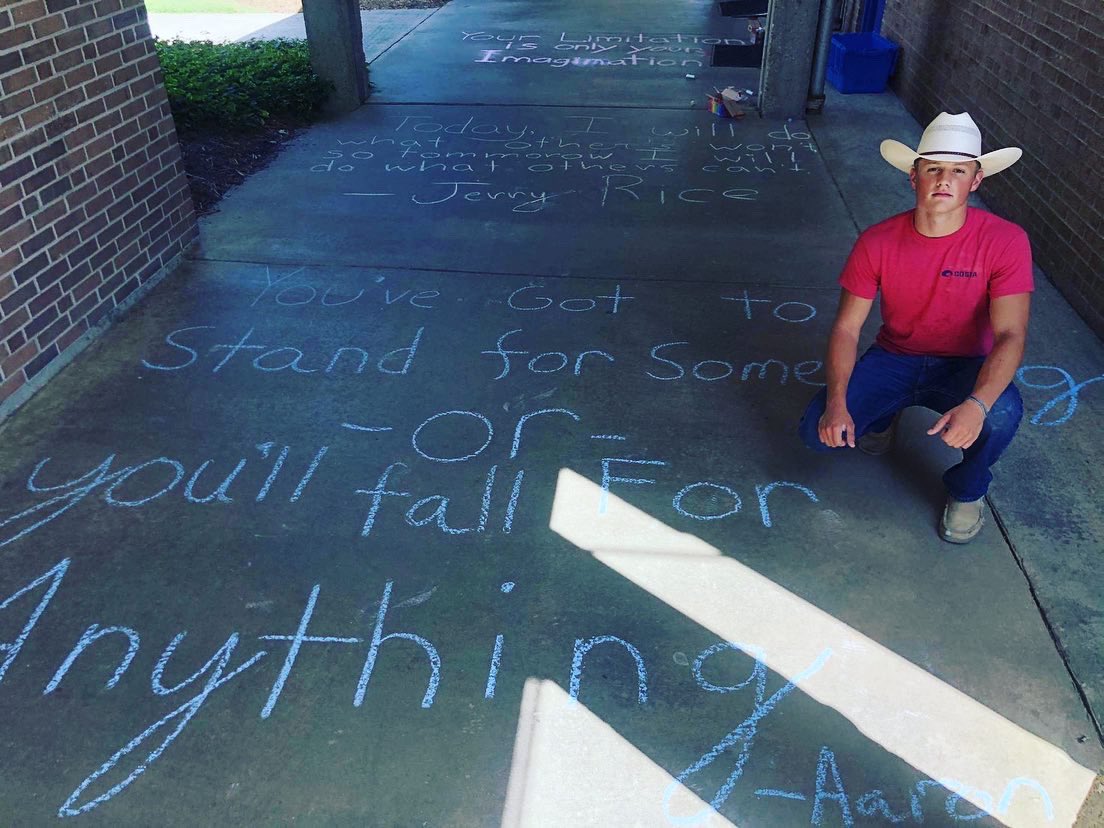 Your Limitation
is only your
Imagination
Today, I will do
what other's won't
so tommorow I will
do what others can't.
- Jerry Rice
COSTA
You've Got to
Stand for Something
-or-
you'll fall For
Anything
-Aaron